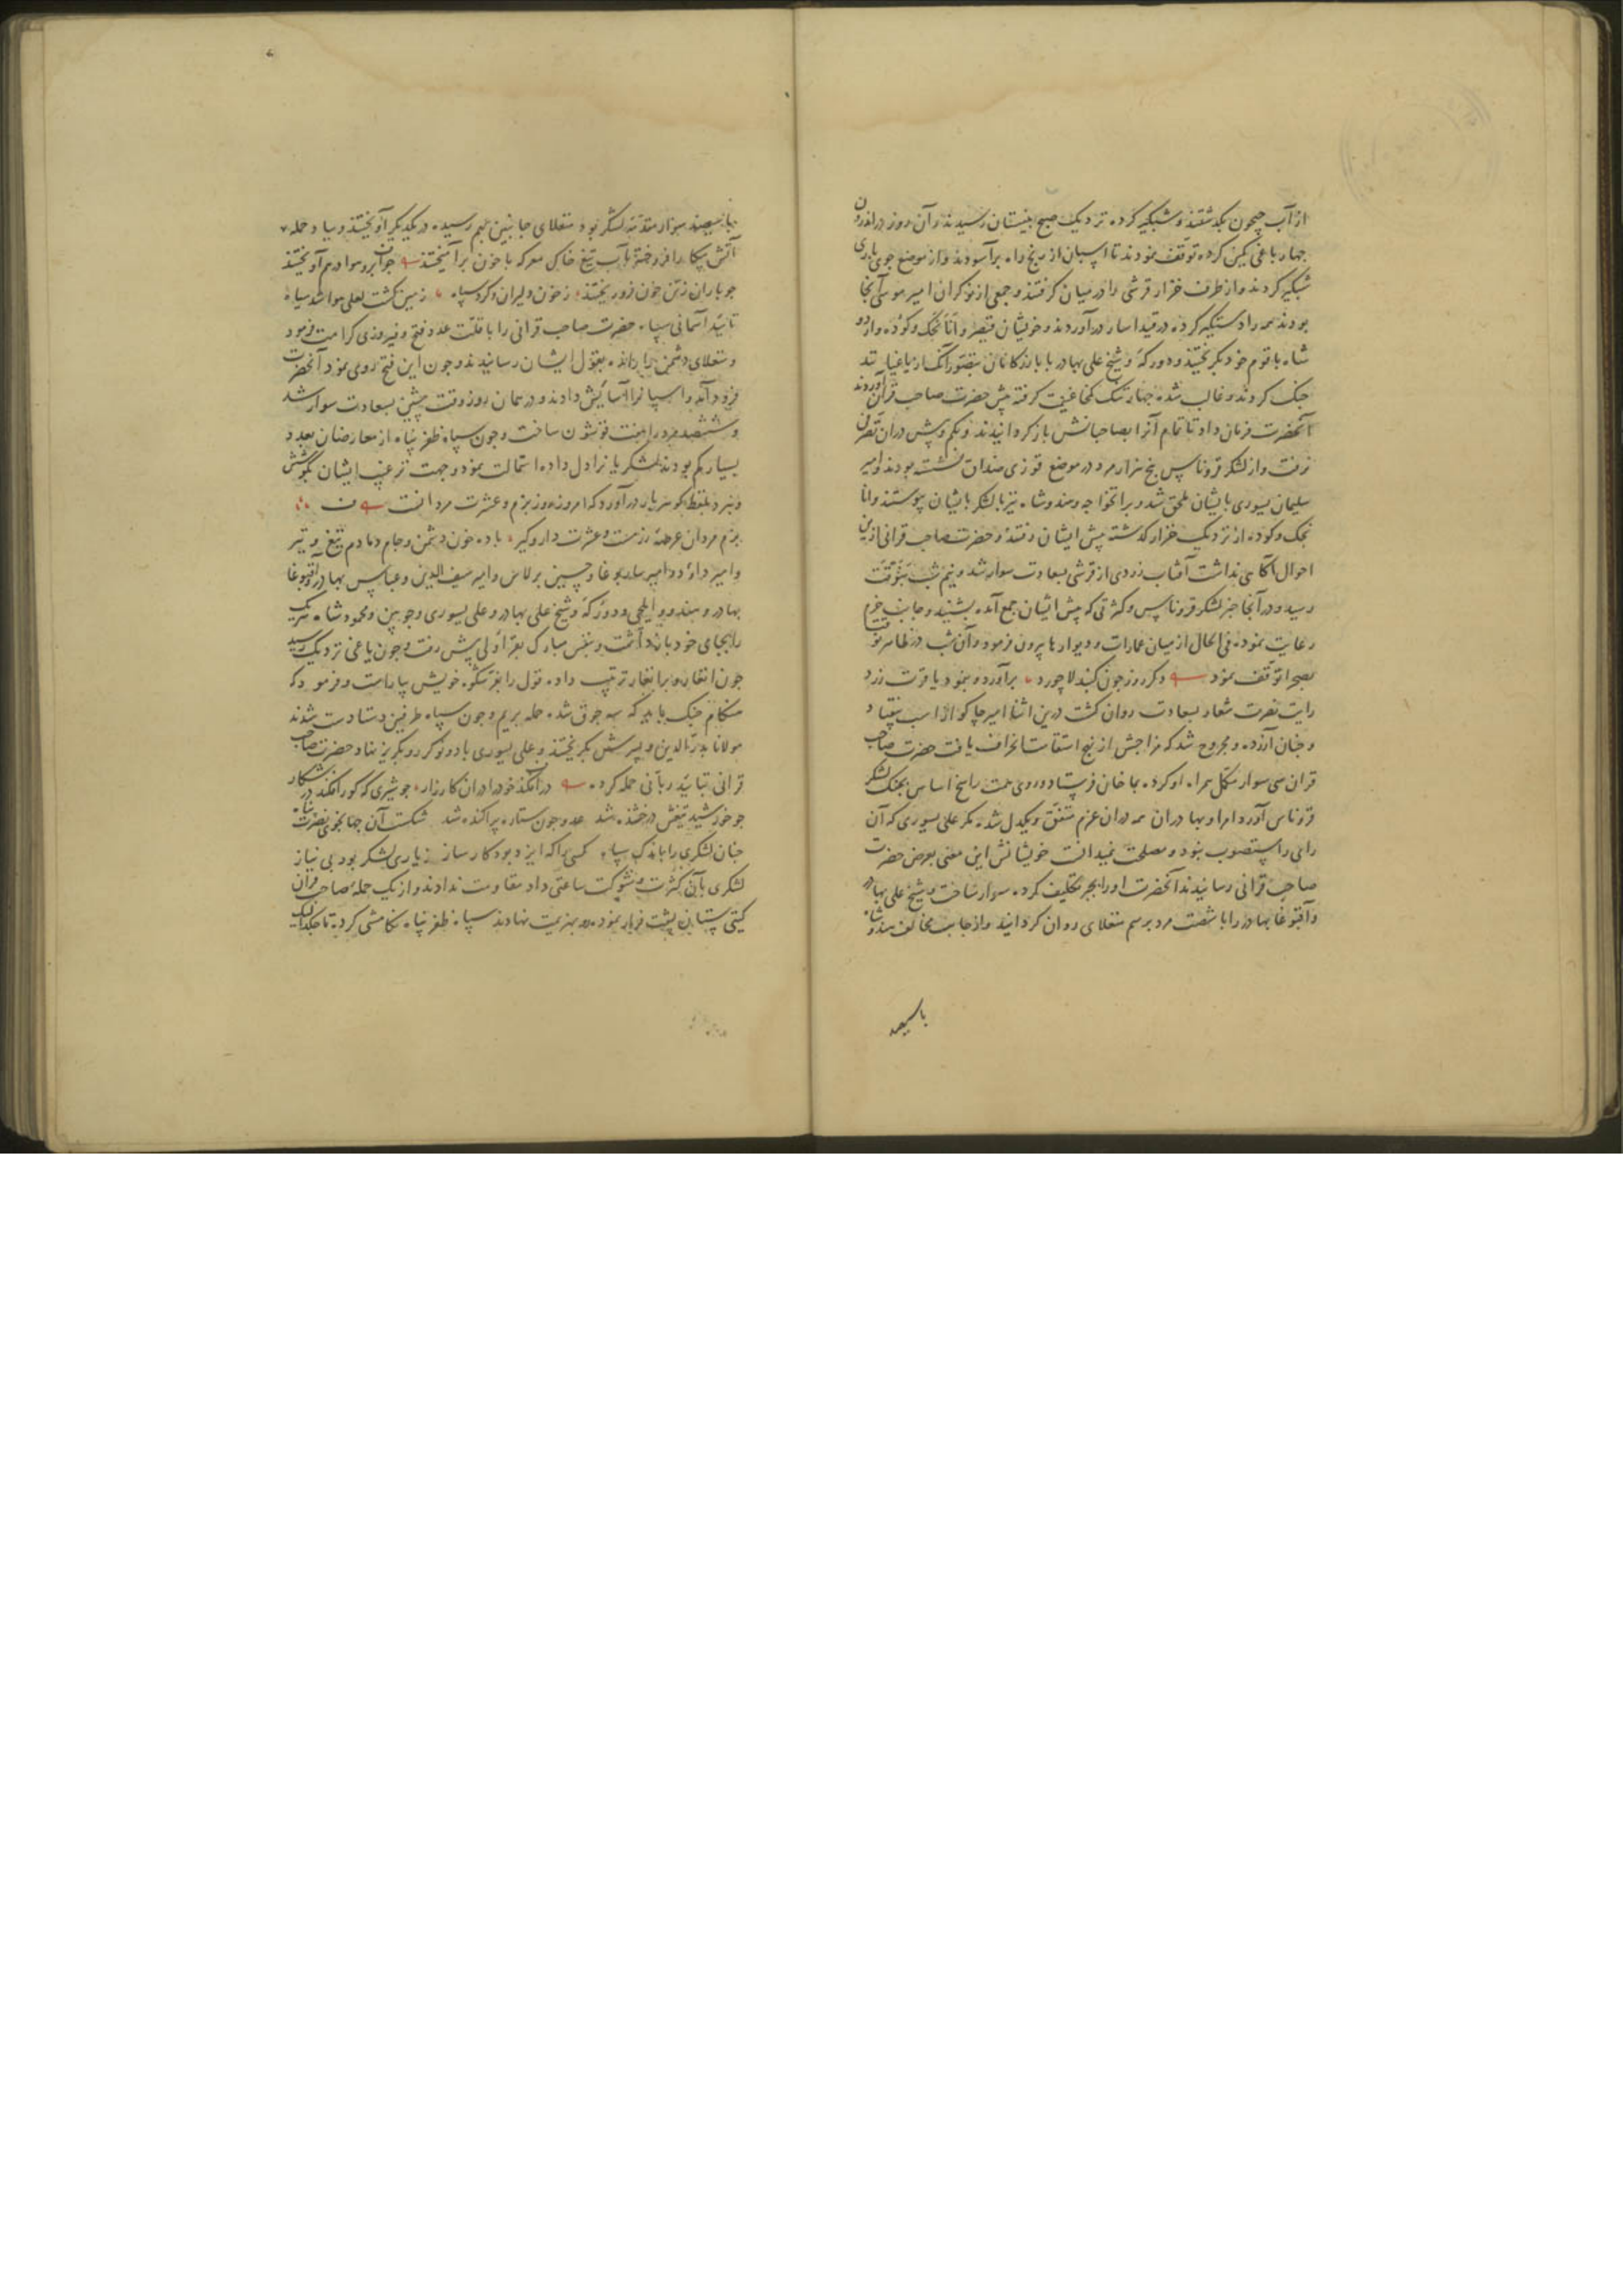 از آب جیحون بگذشتند و شبگیر کرده نزدیک صبح بنیستان رسیدند و آن روز در اندرون
چهار باغی کمین کرده توقف نمودند تا اسپان از رنج راه برآسودند و از موضع جوی باری
شبگیر کردند و از طرف خزار قرشی را در میان گرفتند و جمعی از نوکران امیر موسی آنجا
بودند همه را دستگیر کرده در قید اسار درآوردند و خویشان قیصر و اناتجک و کوده و اردو
شاه با قوم خود بگریختند و دورکه و شیخ علی بهادر با بازرکانان بتصور آنک از یاغیانند
جنک کردند و غالب شده چهار تنک کمخا غنیمت کرفته پیش حضرت صاحب قران آوردند
آنحضرت فرمان داد تا تمام آنرا بصاحبانش باز کردانیدند و بکم و بیش در آن تصرفی
نرفت و از لشکر قروناس پنج هزار مرد در موضع قوزی منداق نشسته بودند و امیر
سلیمان یسوری بایشان ملحق شد و براتخواجه و هندوشاه نیز با لشکر بایشان پیوستند و انا
تجک و کوده از نزدیک خزار کذشته پیش ایشان رفتند و حضرت صاحب قرانی ازین
احوال آکاهی نداشت آفتاب زردی از قرشی بسعادت سوار شد و نیم شب
رسید و در آنجا خبر لشکر قروناس و کثرتی که پیش ایشان جمع آمده بشنید و جانب حزم
رعایت نموده فی الحال از میان عمارات و دیوارها بیرون فرمود و آن شب در ظاهر
بصحرا توقف نمود دکر روز جون کنبد لاجورد برآورد و بنمود یاقوت زرد
رایت نصرت شعار بسعادت روان کشت درین اثنا امیر جاکو از اسب بیفتاد
و جنان آزرده و مجروح شد که مزاجش از نهج استقامت انحراف یافت حضرت صاحب
قران سی سوار مکمل همراه او کرده بماخان فرستاد و روی همت راسخ اساس بجنک لشکر
قروناس آورد امرا و بهادران همه در آن عزم متفق و یکدل شده مکر علی یسوری که آن
رای را مستصوب نبود و مصلحت نمیدانست خویشانش این معنی بعرض حضرت
صاحب قرانی رسانیدند آنحضرت او را بجبر تکلیف کرده سوار ساخت و شیخ علی بهادر
و آقتوغا بهادر را با شصت مرد برسم منغلای روان کردانید و از جانب مخالف هندوشاه
با سیصد
با سیصد سوار مقدمه لشکر بود منغلای جانبین بهم رسیده در یکدیگر آویختند و بباد حمله
آتش پیکار افروخته بآب تیغ خاک معرکه با خون برآمیختند جو ابر و هوا درهم آویختند
جو باران ز تن خون فرو ریختند ز خون دلیران و کرد سپاه زمین کشت لعلی هوا شد سیاه
تایید آسمانی سپاه حضرت صاحب قرانی را با قلت عدد فتح و فیروزی کرامت فرمود
و منغلای دشمن را رانده بقول ایشان رسانیدند و جون این فتح روی نمود آنحضرت
فرود آمد و اسپانرا آسایش دادند و در همان روز وقت پیشین بسعادت سوار شد
و ششصد مرد را هفت قوشون ساخت و جون سپاه ظفر پناه از معارضان بعدد
بسیار کم بودند لشکریانرا دل داده استمالت نمود و جهت ترغیب ایشان بکوشش
و نبرد بلفظ کوهربار درآورد که امروز روز بزم و عشرت مردانست
بزم مردان عرصه رزمست و عشرت دار و کیر باده خون دشمن و جام دمادم تیغ و تیر
و امیر داود و امیر ساربوغا و حسین برلاس و امیر سیف الدین و عباس بهادر و آقبوغا
بهادر و هندو و ایلچی و دورکه و شیخ علی بهادر و علی یسوری و جوپین و محمود شاه هریک
را بجای خود بازداشت و بنفس مبارک بفراولی پیش رفت و جون یاغی نزدیک رسید
جون انغار و برانغار ترتیب داده قول را بفر شکوه خویش بیاراست و فرمود که
هنکام جنک باید که سه جوق شده حمله بریم و جون سپاه طرفین دستادست شدند
مولانا بدرالدین و پسرش بکریختند و علی یسوری با دو نوکر رو بکریز نهاد و حضرت صاحب
قرانی بتایید ربانی حمله کرده درافکند خود را در آن کارزار جو شیری که کور افکند در شکار
جو خورشید تیغش درخشنده شد عدو جون ستاره پراکنده شد شکست آن جهانجوی نصرت پناه
جنان لشکری را باندک سپاه کسی را که ایزد بود کارساز ز یاری لشکر بود بی نیاز
لشکری بآن کثرت و شوکت ساعتی داد مقاومت ندادند و از یک حمله صاحب قران
کیتی ستان پشت فرار نموده رو بهزیمت نهادند سپاه ظفر پناه تکامشی کرده تا جکدالیک